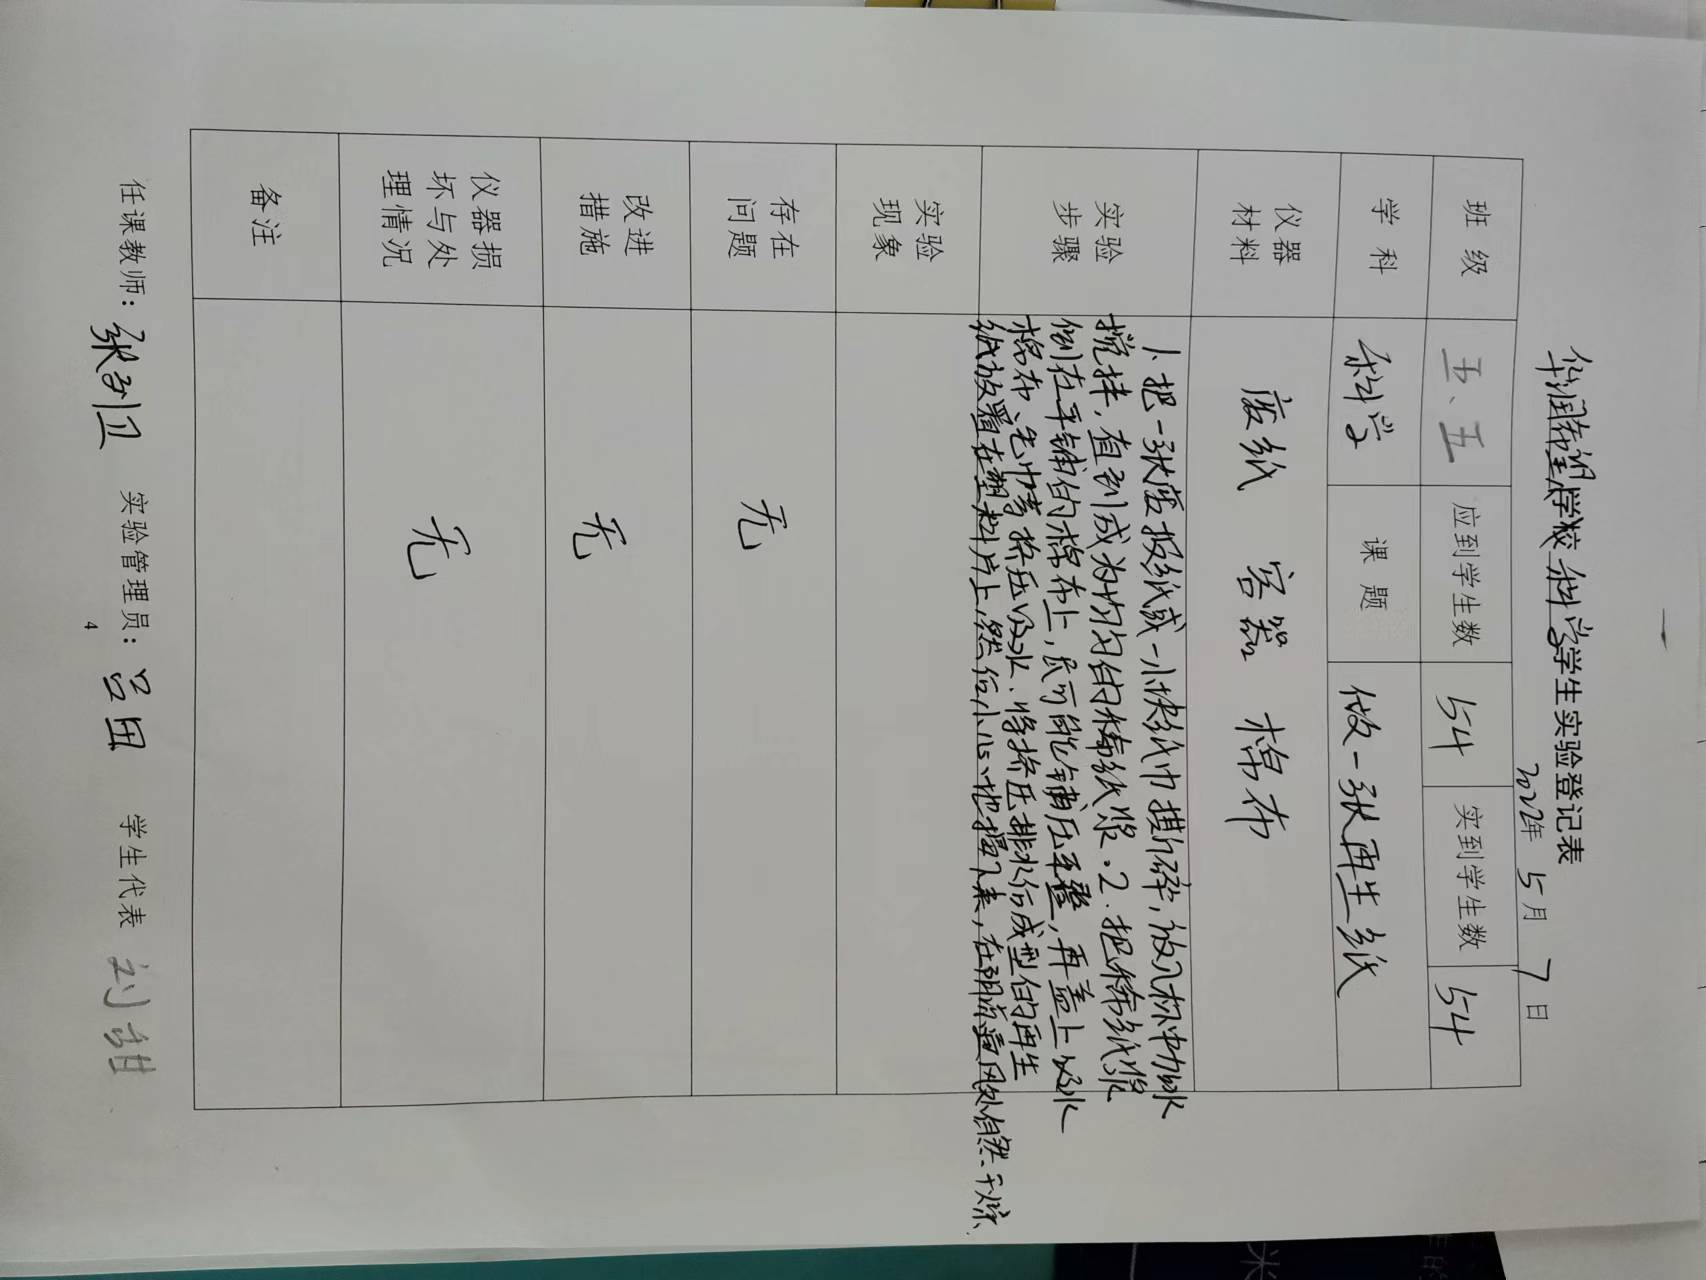 华润希望学校科学学生实验登记表
2022年 5月 7日
班级 五、五 应到学生数 54 实到学生数 54
学科 科学 课题 做一张再生纸
仪器材料 废纸 容器 棉布
实验步骤
1、把一张废报纸或一小块纸巾撕碎，放入杯中加水
搅拌，直到成为均匀的稀纸浆．2．把稀纸浆
倒在平铺的棉布上，尽可能铺压平整，再盖上吸水
棉布、毛巾等挤压吸水、将挤压排水后成型的再生
纸放置在塑料片上，然后小心地揭下来，在阴凉通风处自然干燥、
实验现象
存在问题 无
改进措施 无
仪器损坏与处理情况 无
备注
任课教师： 实验管理员：吕田 学生代表 刘甜
4
米